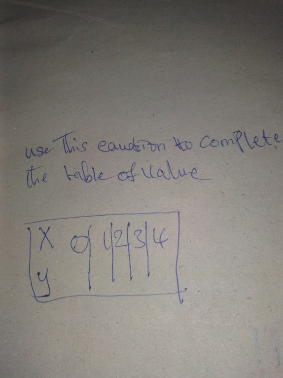 use This equation to complete
the table of value
x 0 1 2 3 4
y